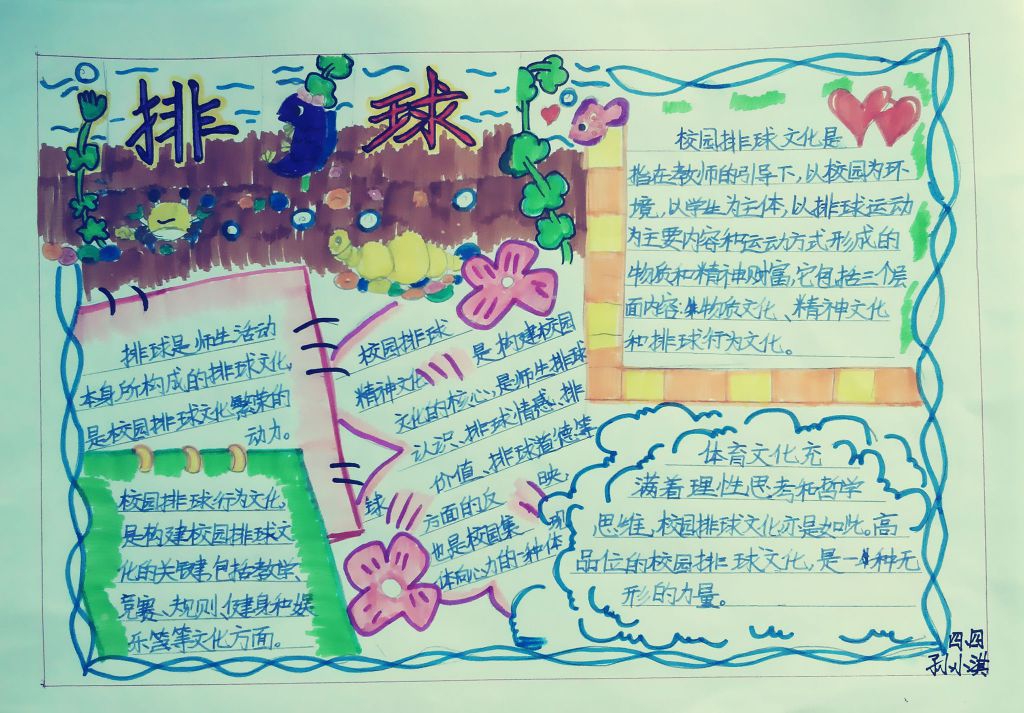 排球
校园排球文化是
指在教师的引导下,以校园为环
境,以学生为主体,以排球运动
为主要内容和运动方式形成的
物质和精神财富,它包括三个层
面内容:物质文化、精神文化
和排球行为文化。
排球是师生活动
本身所构成的排球文化,
是校园排球文化繁荣的
动力。
校园排球 是构建校园
精神文化
文化的核心,是师生排球
认识、排球情感、排
球
价值、排球道德等
方面的反映,
也是校园集 现
体向心力的一种体
校园排球行为文化
是构建校园排球文
化的关键,包括教学、
竞赛、规则、健身和娱
乐等等文化方面。
体育文化充
满着理性思考和哲学
思维,校园排球文化亦是如此。高
品位的校园排球文化,是一种无
形的力量。
四四
孙小淇